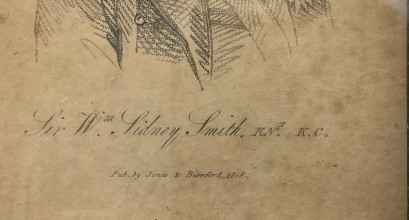 Sir Wm. Sidney Smith, KNT. K.C.
Pub. by Jones & Bumford, 1806.